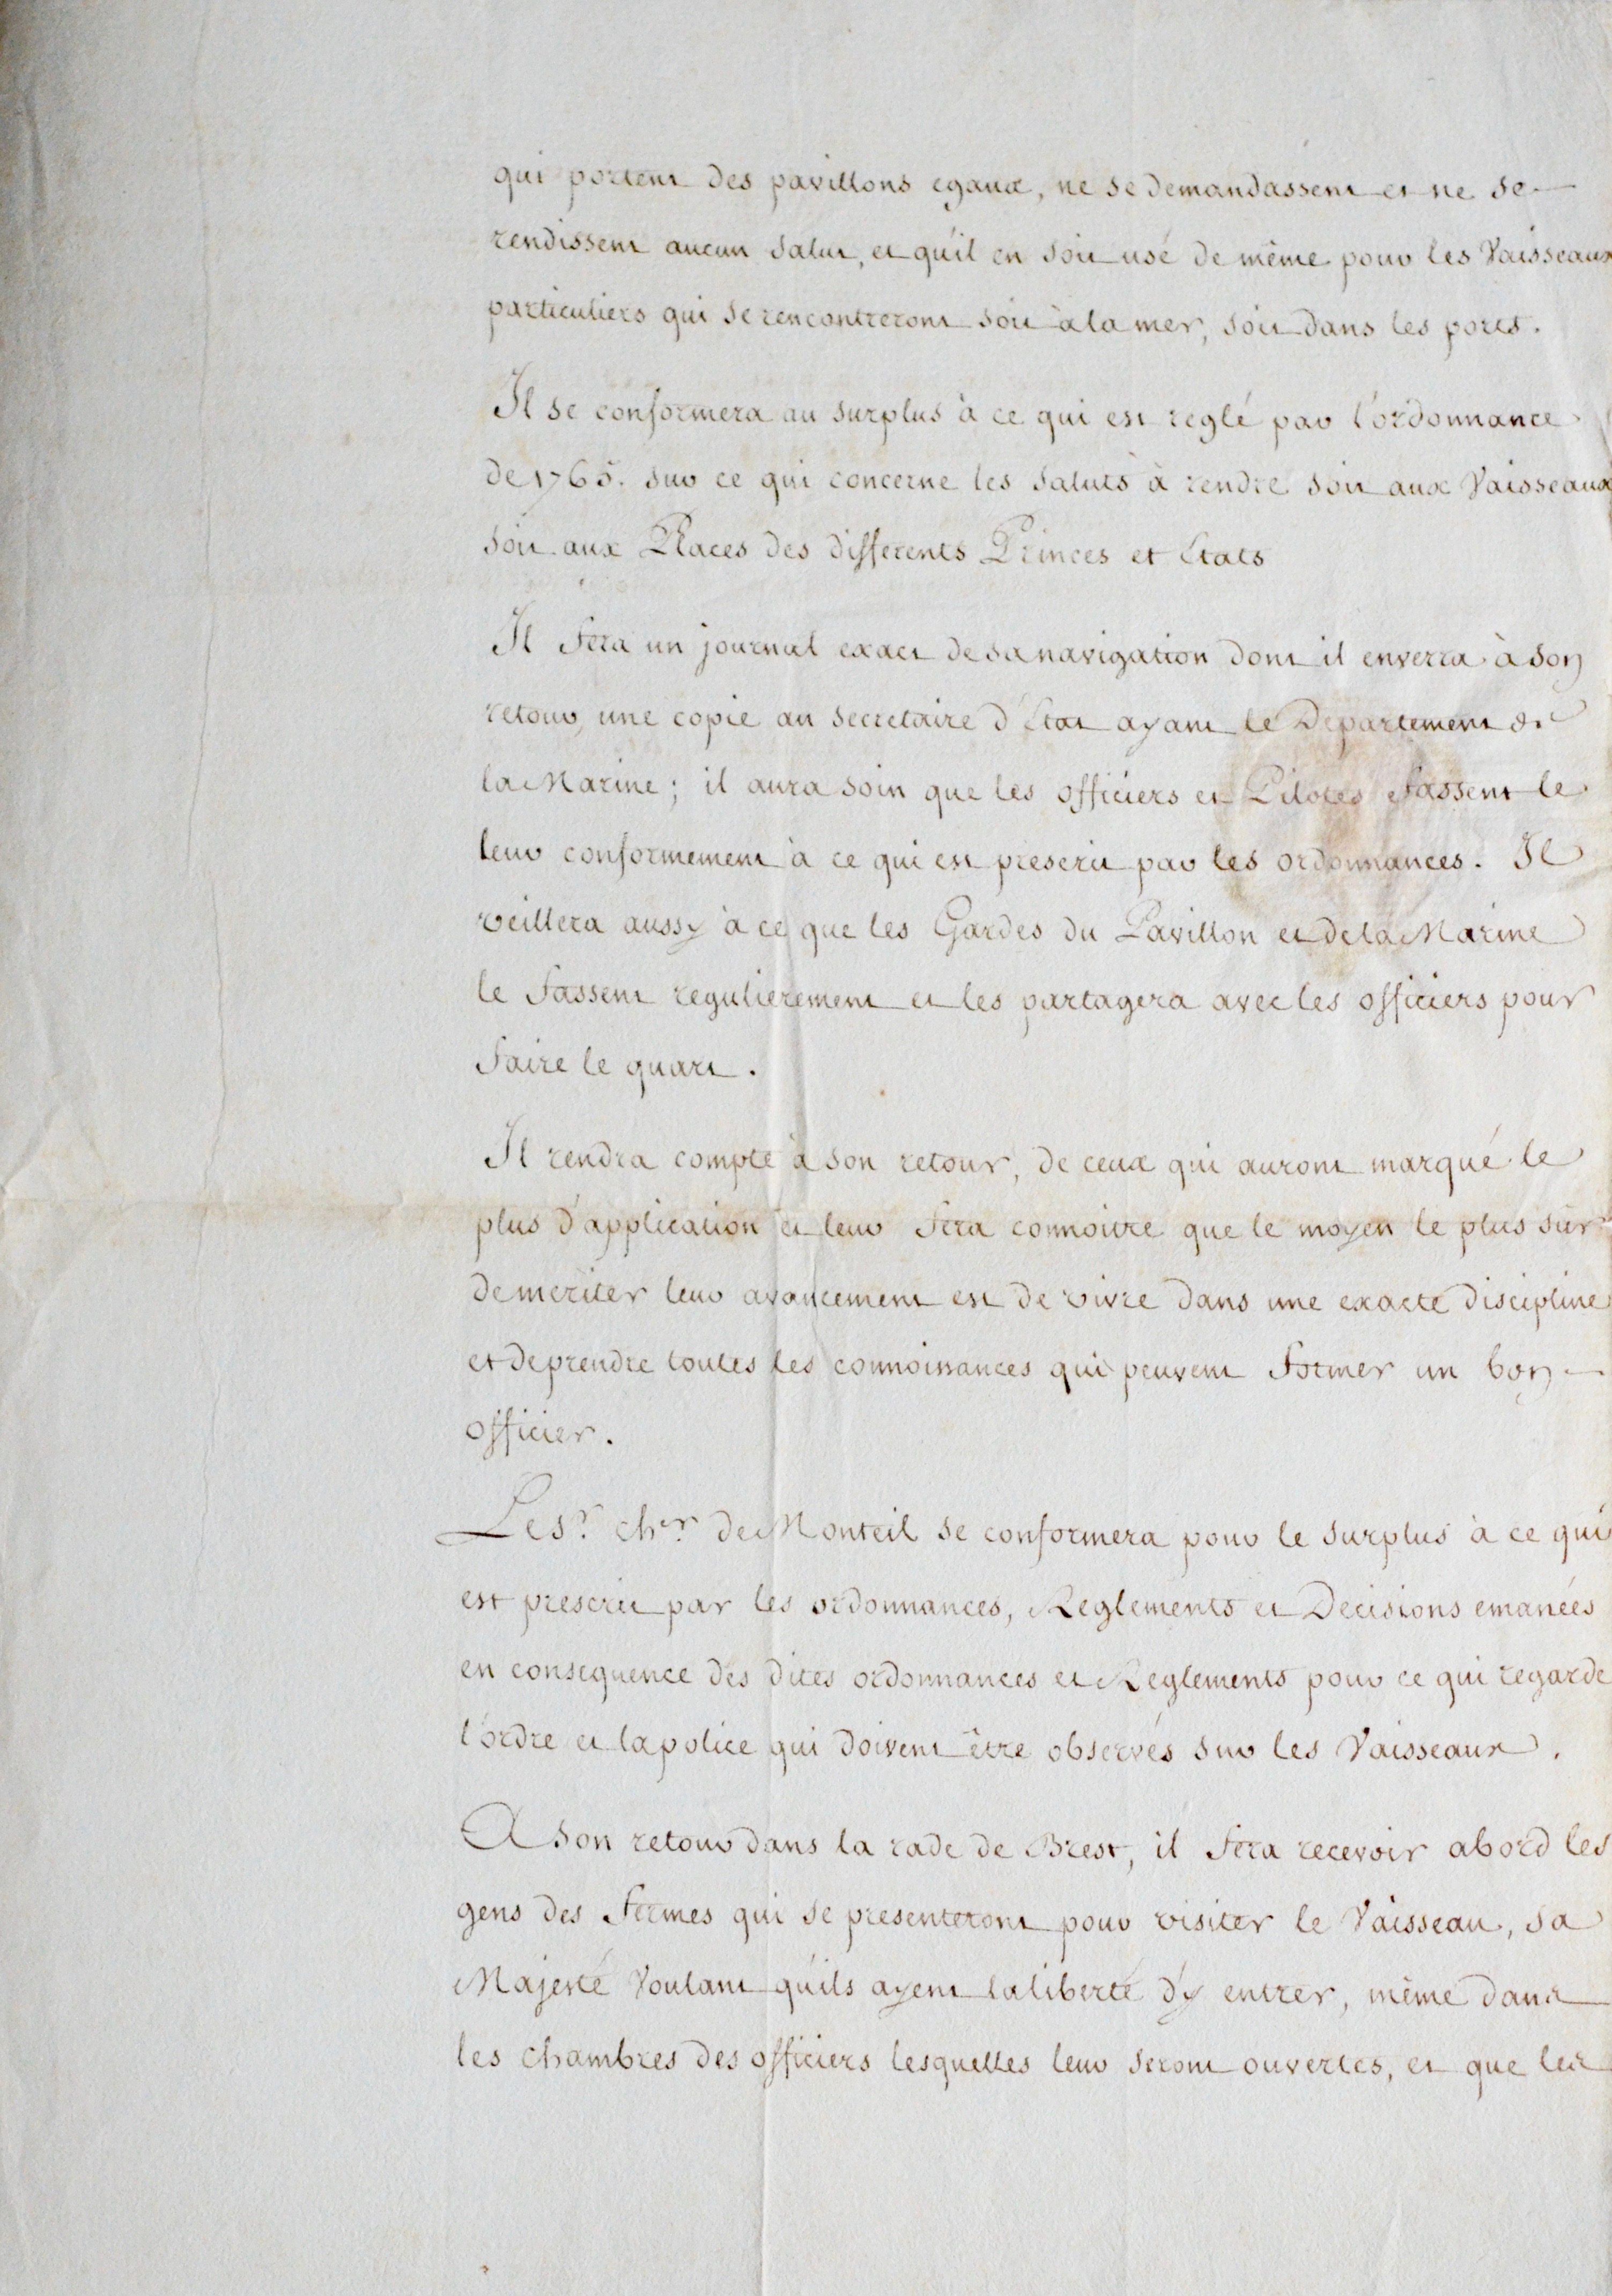 qui portent des pavillons egaux, ne se demandassent et ne se
rendissent aucun salut, et qu'il en soit usé de même pour les Vaisseaux
particuliers qui se rencontreront soit à la mer, soit dans les ports.
Il se conformera au surplus à ce qui est reglé par l'ordonnance
de 1765. sur ce qui concerne les saluts à rendre soit aux Vaisseaux
soit aux Places des differents Princes et Etats
Il fera un journal exact de sa navigation dont il enverra à son
retour, une copie au secretaire d'Etat ayant le Departement de
la Marine ; il aura soin que les officiers et Pilotes fassent le
leur conformement à ce qui est prescrit par les ordonnances. Il
veillera aussy à ce que les Gardes du Pavillon et de la Marine
le fassent regulierement et les partagera avec les officiers pour
faire le quart.
Il rendra compte à son retour, de ceux qui auront marqué le
plus d'application et leur fera connoitre que le moyen le plus sûr
de meriter leur avancement est de vivre dans une exacte discipline
et de prendre toutes les connoissances qui peuvent former un bon
officier.
Le sr. cher. de Monteil se conformera pour le surplus à ce qui
est prescrit par les ordonnances, Reglements et Decisions emanées
en consequence des dites ordonnances et Reglements pour ce qui regarde
l'ordre et la police qui doivent être observés sur les Vaisseaux.
A son retour dans la rade de Brest, il fera recevoir abord les
gens des fermes qui se presenteront pour visiter le Vaisseau, sa
Majesté Voulant qu'ils ayent la liberté d'y entrer, même dans
les chambres des officiers lesquelles leur seront ouvertes, et que les